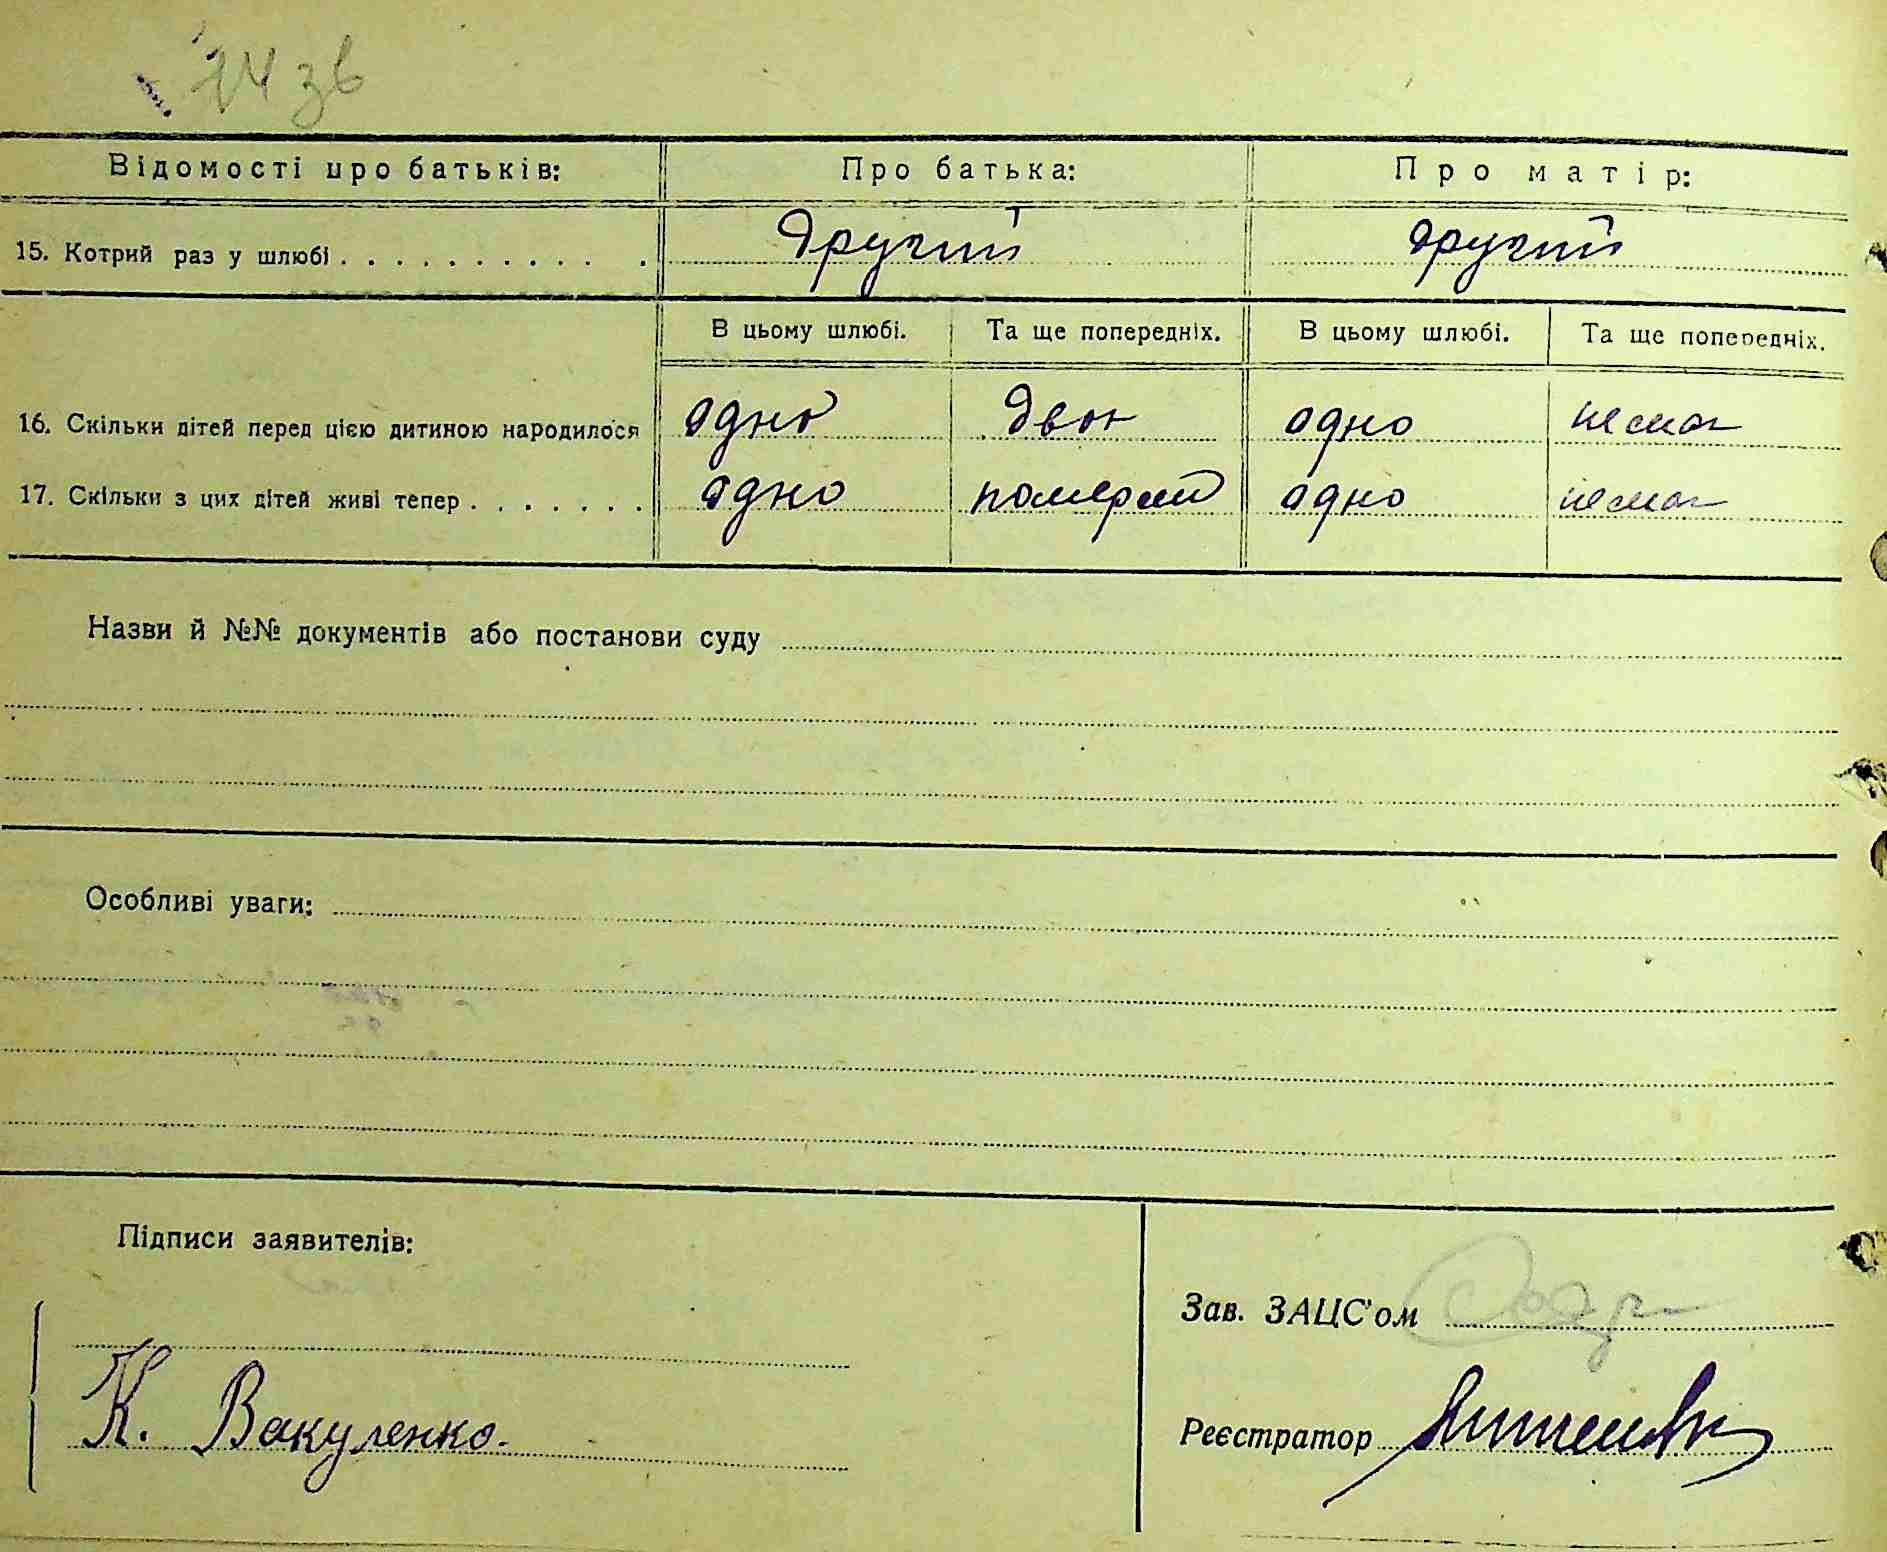 14 зв
Відомості про батьків: Про батька: Про матір:
15. Котрий раз у шлюбі . . . . . . . . . . . другий другий
В цьому шлюбі. Та ще попередніх. В цьому шлюбі. Та ще попередніх.
16. Скільки дітей перед цією дитиною народилося одно двоє одно немає
17. Скільки з цих дітей живі тепер . . . . . . . одно померли одно немає
Назви й №№ документів або постанови суду
Особливі уваги:
Підписи заявителів:
Зав. ЗАЦС'ом
К. Вакуленко.
Реєстратор